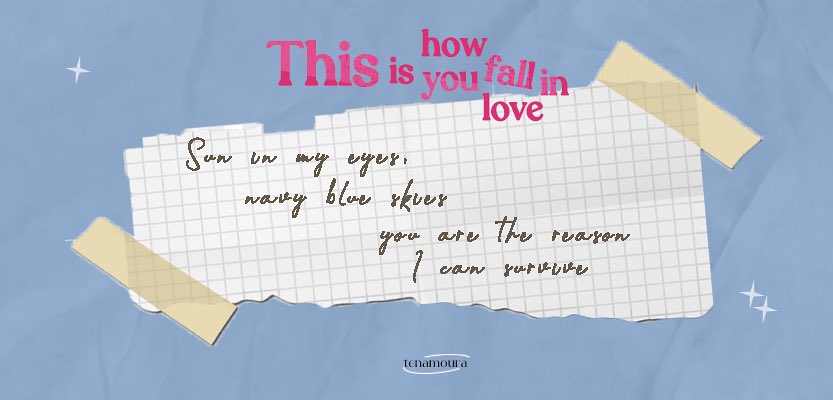 This is how you fall in love
Sun in my eyes,
navy blue skies
you are the reason
I can survive
tenamoura